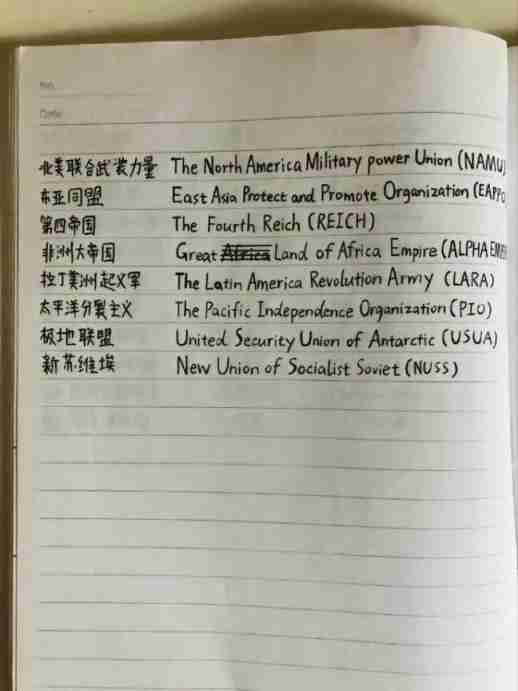 No.
Date
北美联合武装力量 The North America Military power Union (NAMU)
东亚同盟 East Asia Protect and Promote Organization (EAPPO
第四帝国 The Fourth Reich (REICH)
非洲大帝国 Great Africa Land of Africa Empire (ALPHAEMPI
拉丁美洲起义军 The Latin America Revolution Army (LARA)
太平洋分裂主义 The Pacific Independence Organization (PIO)
极地联盟 United Security Union of Antarctic (USUA)
新苏维埃 New Union of Socialist Soviet (NUSS)